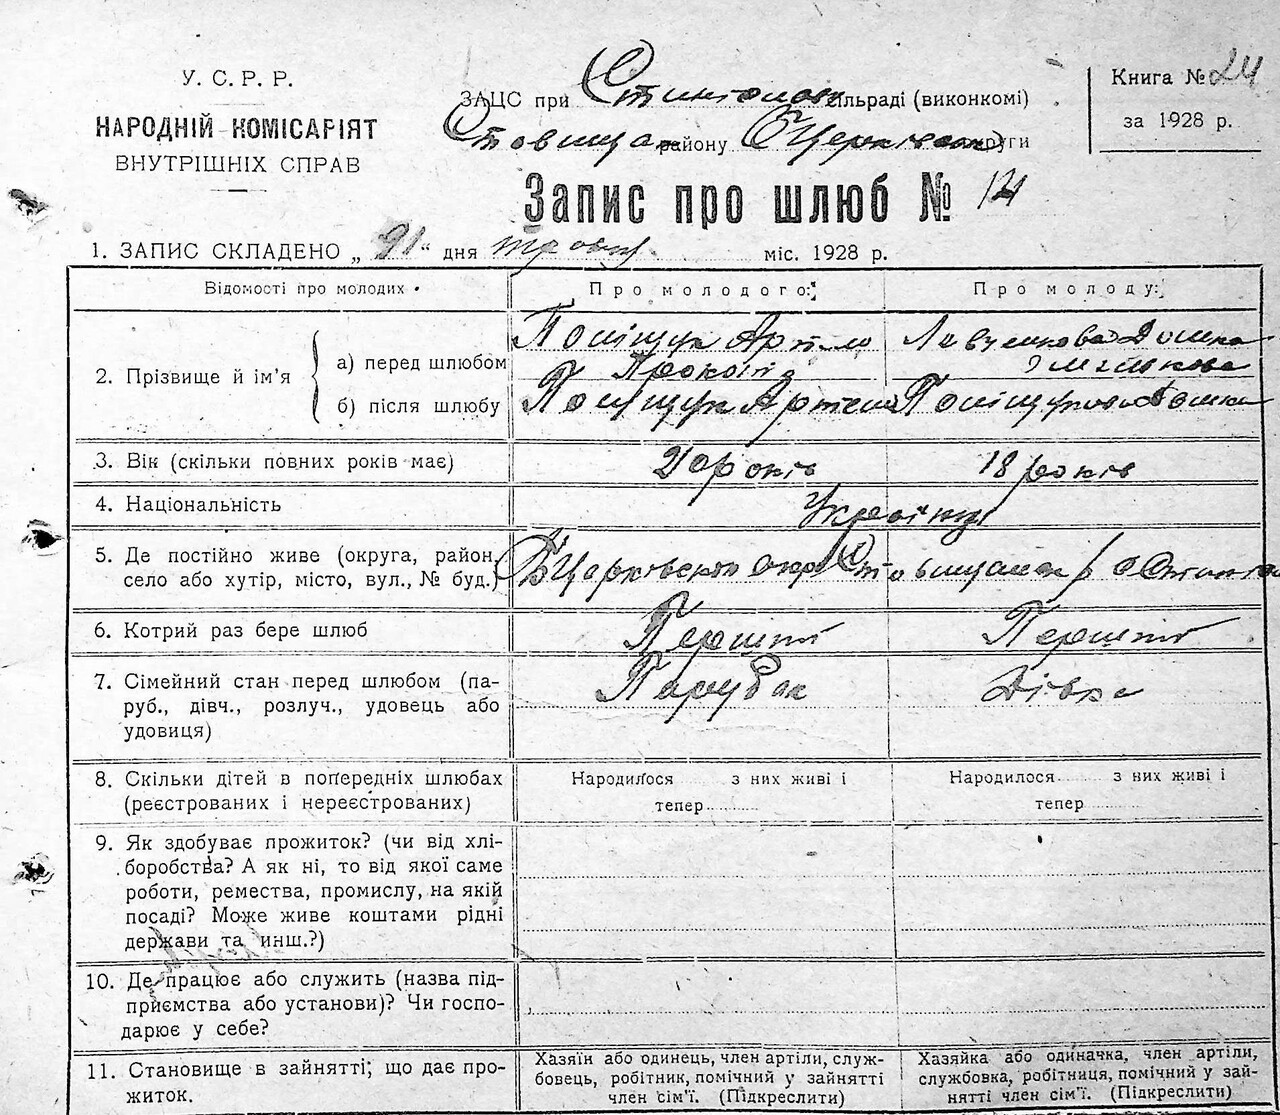 У. С. Р. Р.
НАРОДНІЙ КОМІСАРІЯТ
ВНУТРІШНІХ СПРАВ
ЗАЦС при сільраді (виконкомі)
району округи
Книга № 24
за 1928 р.
Запис про шлюб № 14
1. ЗАПИС СКЛАДЕНО „ “ дня травня міс. 1928 р.
Відомості про молодих
Про молодого:
Про молоду:
2. Прізвище й ім’я
а) перед шлюбом
Поліщук Артем
Прокопів
Домка
б) після шлюбу
Поліщук Артем
Поліщукова Домка
3. Вік (скільки повних років має)
20 років
18 років
4. Національність
Українці
5. Де постійно живе (округа, район,
село або хутір, місто, вул., № буд.)
6. Котрий раз бере шлюб
Перший
Перший
7. Сімейний стан перед шлюбом (па-
руб., дівч., розлуч., удовець або
удовиця)
Парубок
Дівка
8. Скільки дітей в попередніх шлюбах
(реєстрованих і нереєстрованих)
Народилося з них живі і
тепер
Народилося з них живі і
тепер
9. Як здобуває прожиток? (чи від хлі-
боробства? А як ні, то від якої саме
роботи, ремества, промислу, на якій
посаді? Може живе коштами рідні
держави та инш.?)
10. Де працює або служить (назва під-
приємства або установи)? Чи госпо-
дарює у себе?
11. Становище в зайнятті; що дає про-
житок.
Хазяїн або одинець, член артіли, служ-
бовець, робітник, помічний у зайнятті
член сім’ї. (Підкреслити)
Хазяйка або одиначка, член артіли,
службовка, робітниця, помічний у зай-
нятті член сім’ї. (Підкреслити)